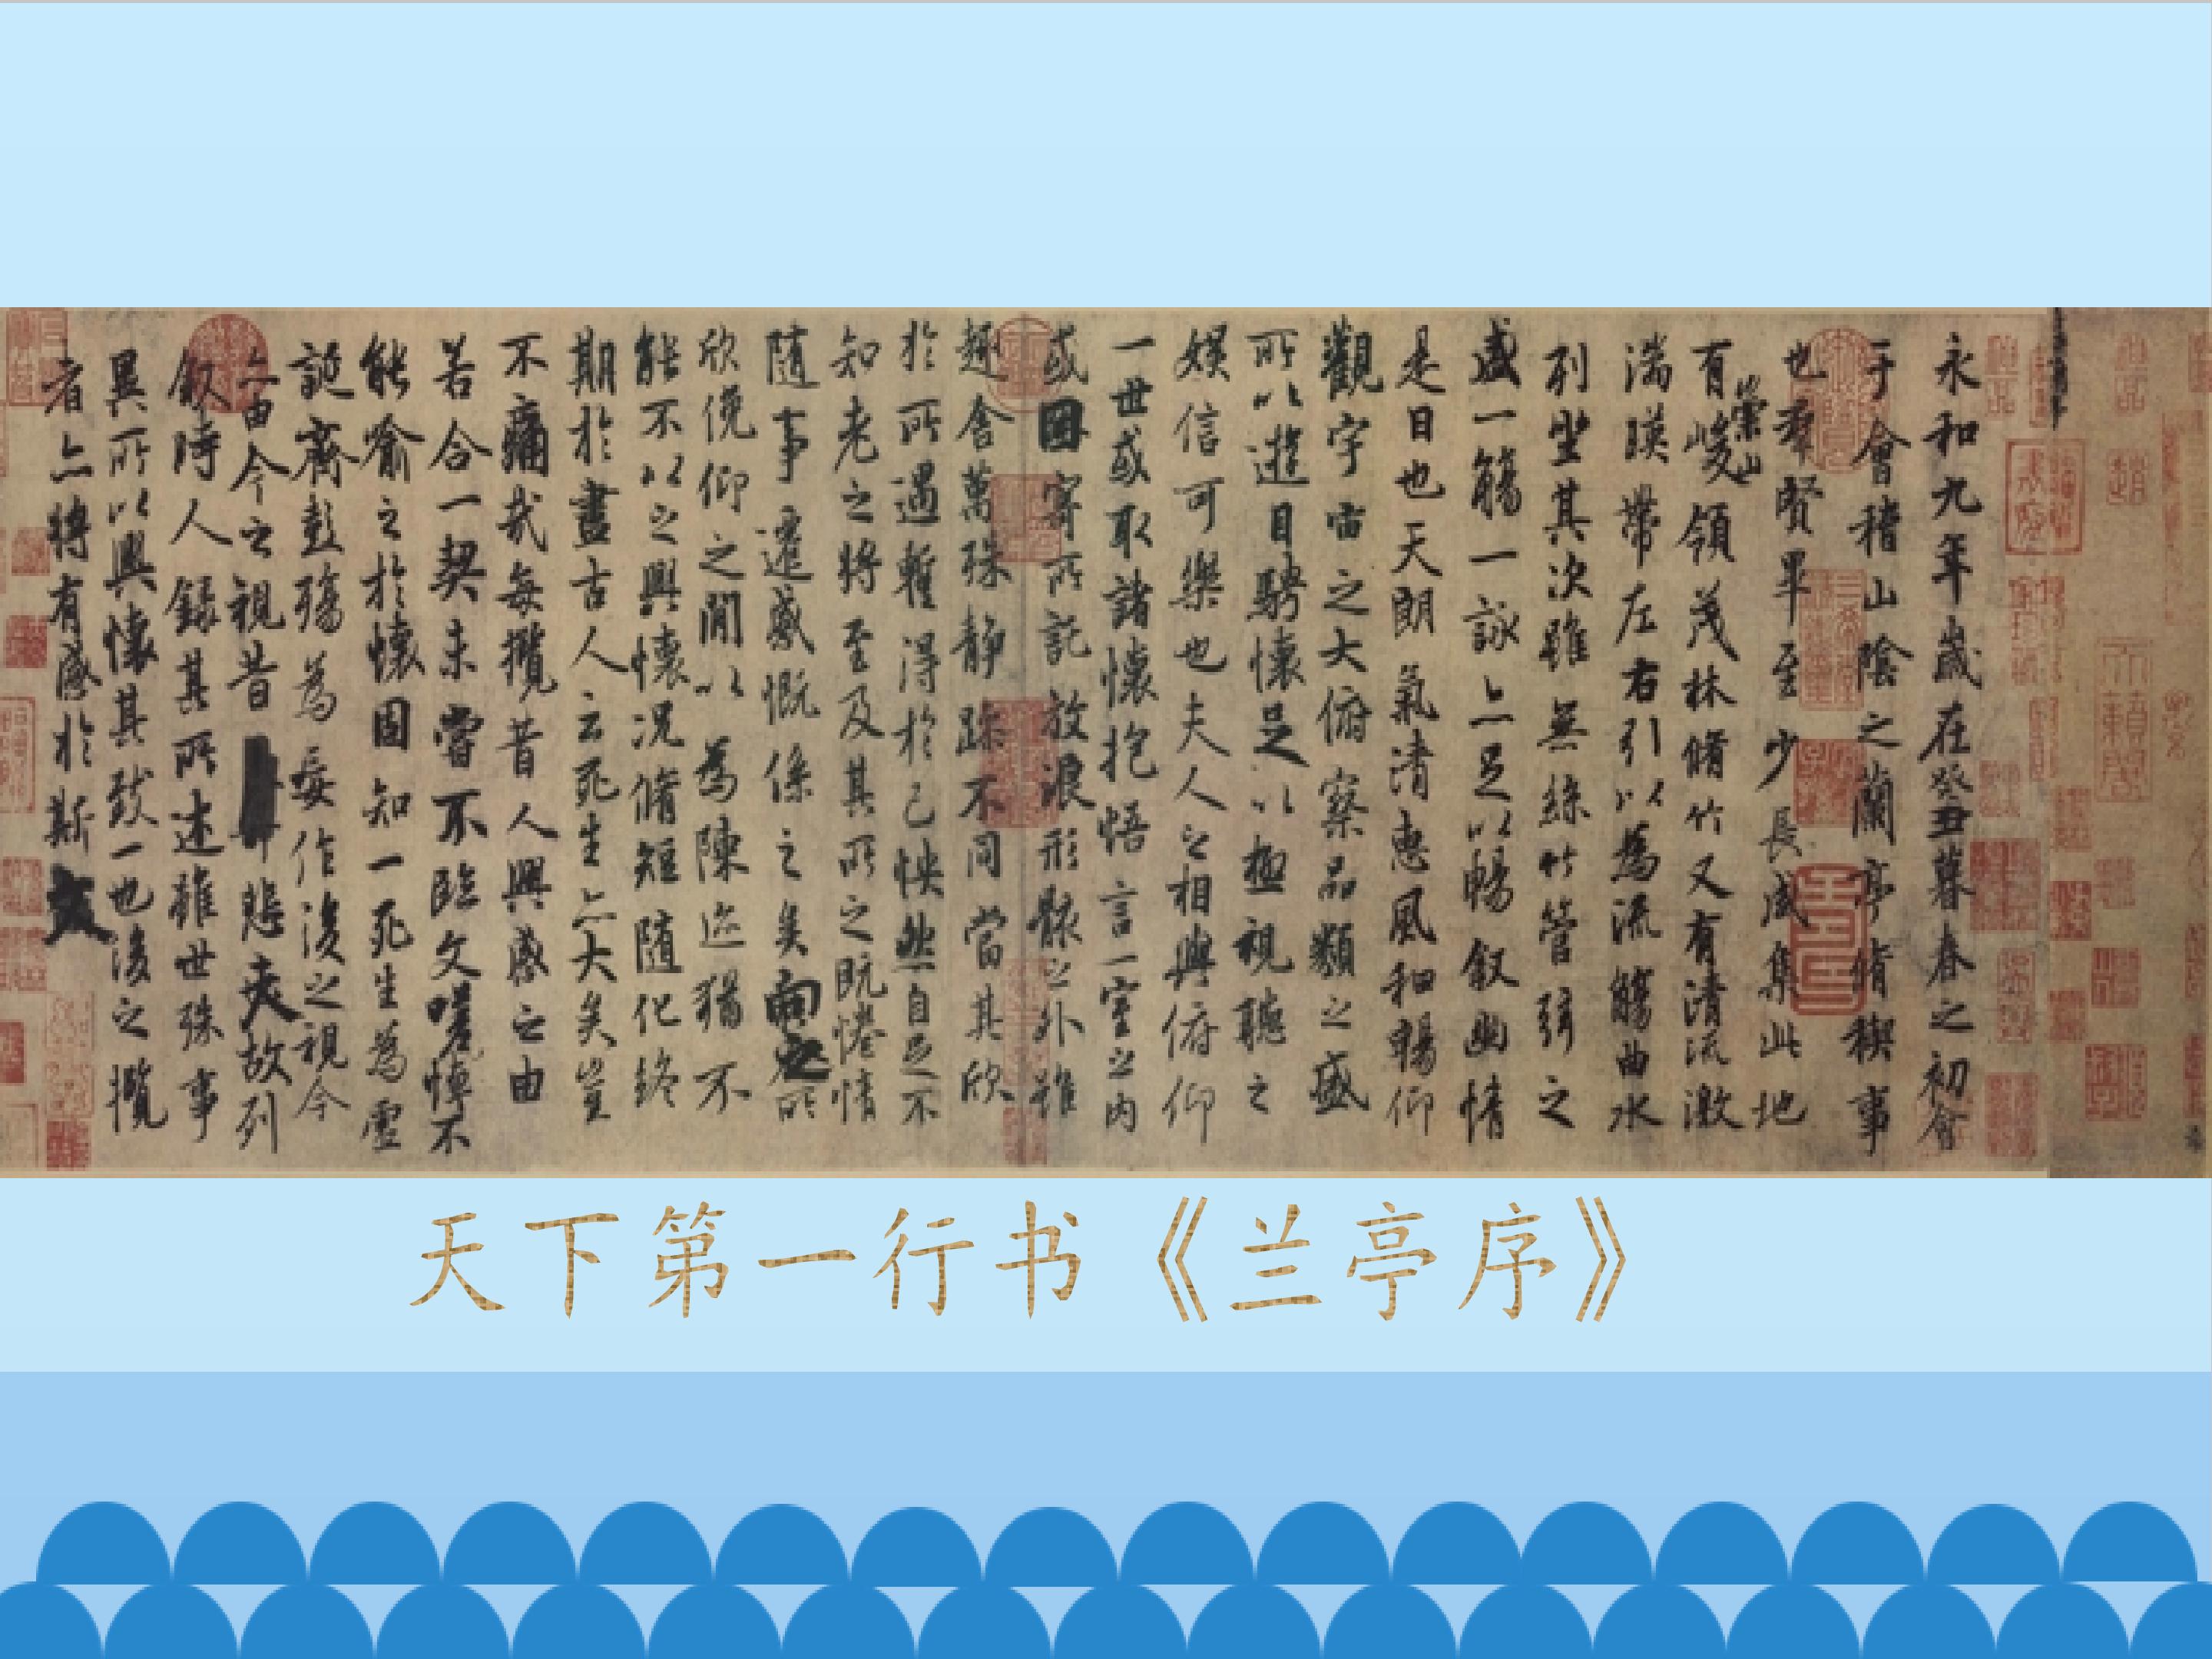 永和九年歲在癸丑暮春之初會
于會稽山陰之蘭亭脩稧事
也羣賢畢至少長咸集此地
有崇山峻領茂林脩竹又有清流激
湍暎帶左右引以為流觴曲水
列坐其次雖無絲竹管弦之
盛一觴一詠亦足以暢叙幽情
是日也天朗氣清惠風和暢仰
觀宇宙之大俯察品類之盛
所以遊目騁懷足以極視聽之
娛信可樂也夫人之相與俯仰
一世或取諸懷抱悟言一室之內
或因寄所託放浪形骸之外雖
趣舍萬殊靜躁不同當其欣
於所遇暫得於己怏然自足不
知老之將至及其所之既惓情
隨事遷感慨係之矣向之所
欣俛仰之閒以為陳迹猶不
能不以之興懷況脩短隨化終
期於盡古人云死生亦大矣豈
不痛哉每攬昔人興感之由
若合一契未嘗不臨文嗟悼不
能喻之於懷固知一死生為虛
誕齊彭殤為妄作後之視今
亦由今之視昔悲夫故列
叙時人錄其所述雖世殊事
異所以興懷其致一也後之攬
者亦將有感於斯文
天下第一行书《兰亭序》